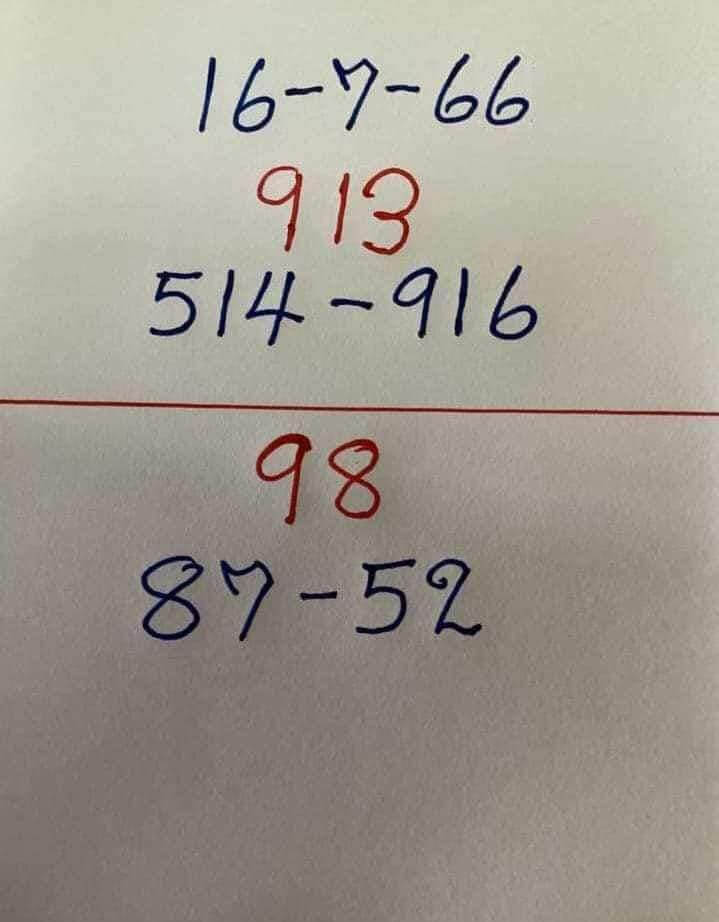 16-7-66
913
514-916
98
87-52